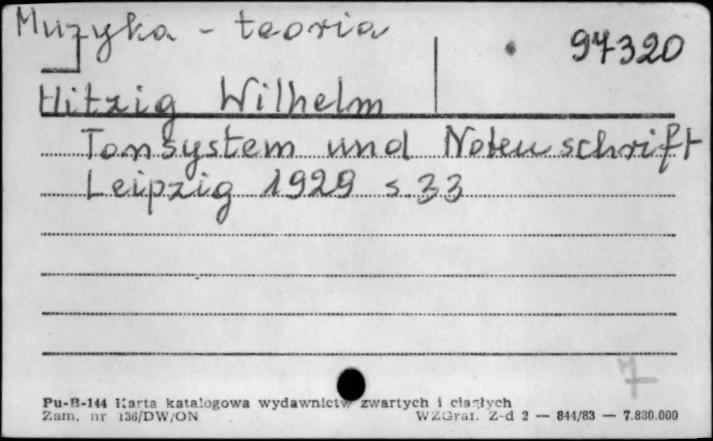 Muzyka - teoria
97320
Hitzig Wilhelm
Tonsystem und Notenschrift
Leipzig 1929 s 33
7
Pu-B-144 Karta katalogowa wydawnictw zwartych i ciągłych
Zam. nr 136/DW/ON WZGraf. Z-d 2 — 844/83 — 7.830.000